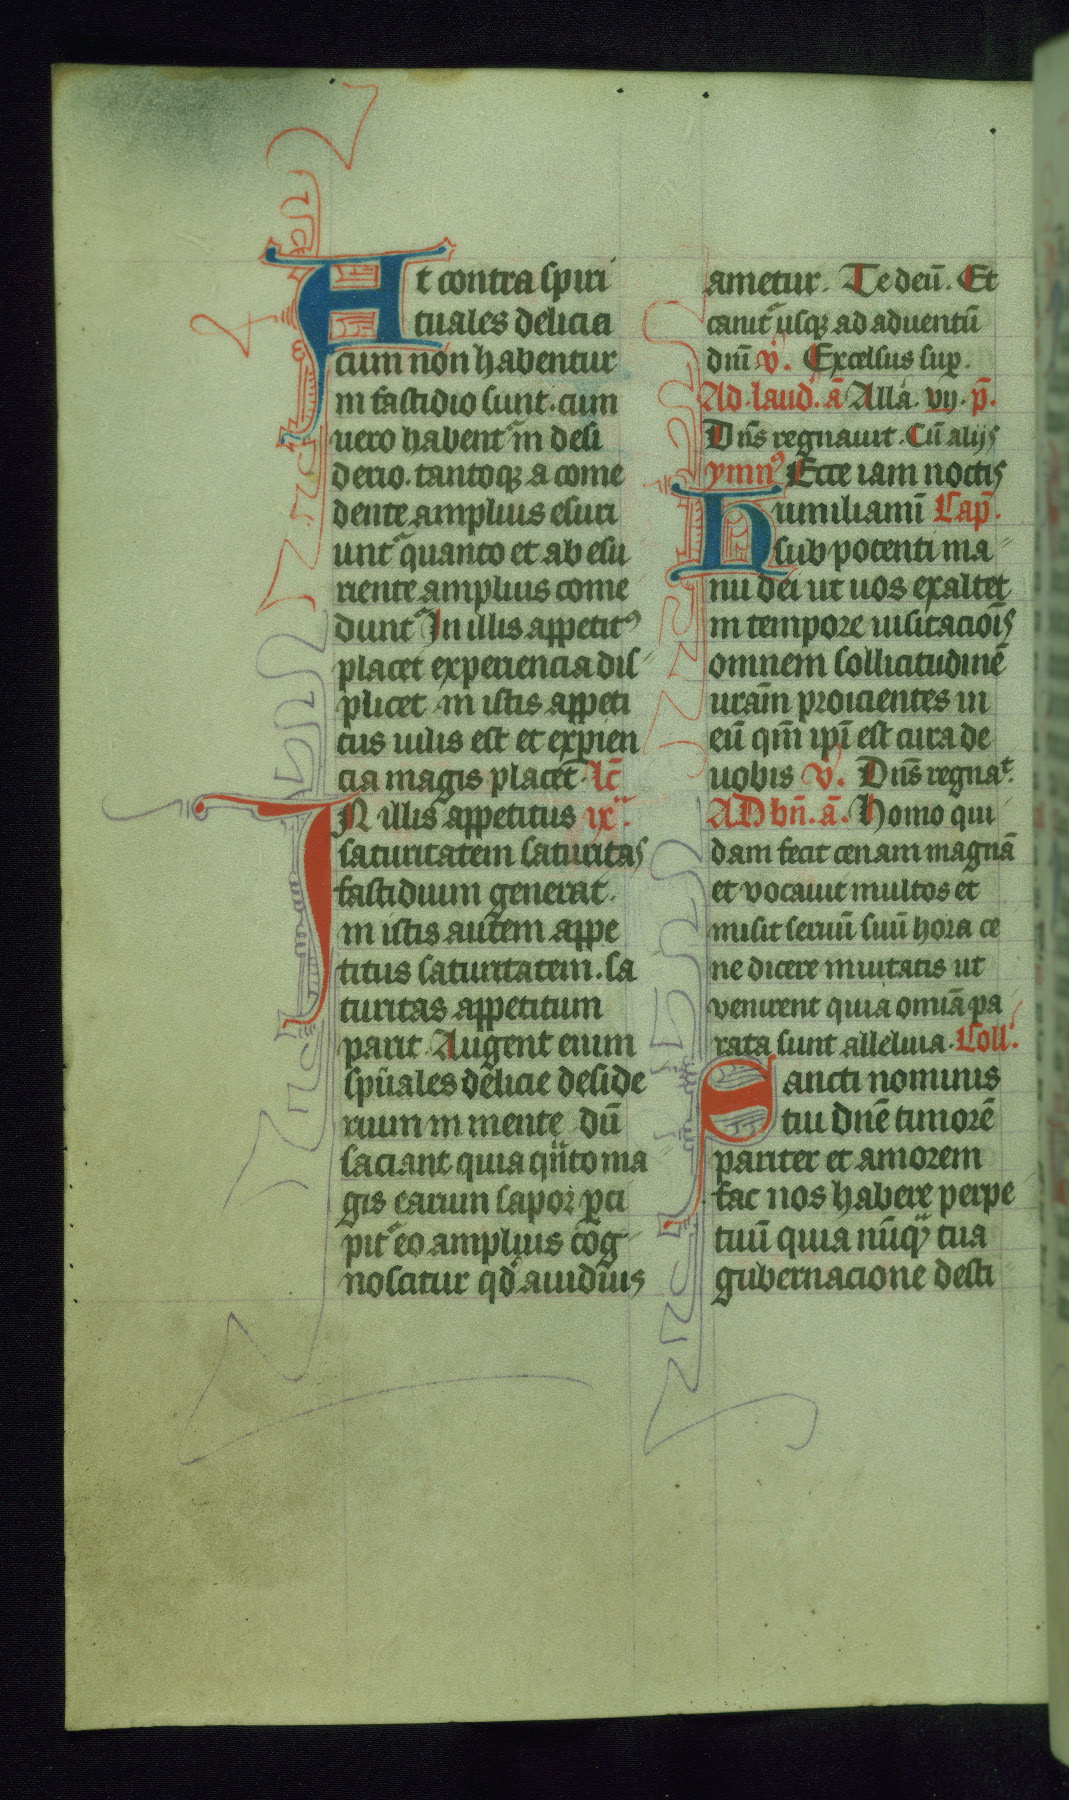 At contra spiri
tuales delicie
cum non habentur
in fastidio sunt. cum
uero habent᷑ in desi
derio. tantoq̢ a come
dente amplius esuri
unt᷑ quanto et ab esu
riente amplius come
dunt᷑ In illis appetitꝰ
placet experiencia dis
plicet in istis appeti
tus uilis est et exꝑien
cia magis placet. lc̄
IN illis appetitus ix.
saturitatem saturitas
fastidium generat.
in istis autem appe
titus saturitatem. sa
turitas appetitum
parit. Augent enim
sp̄uales delicie deside
rium in mente dū
saciant quia qn̄to ma
gis earum sapor ꝑci
pit᷑ eo amplius cog
noscitur qd̓ auidius
ametur. Te deū. Et
canit᷑ usq̢ ad aduentū
dn̄i v̓. Excelsus suꝑ.
Ad laud. ā Alla. vij. p̄.
Dn̄s regnauit. Cū alijs
ymnꝰ Ecce iam noctis
Humiliamī Cap̄.
sub potenti ma
nu dei ut uos exaltet
in tempore uisitacioīs
omnem sollicitudinē
uram̄ proicientes in
eū qm̄ ip̄i est cura de
uobis v̓. Dn̄s regnaᵗ.
AD bn̄. ā. Homo qui
dam fecit cenam magnā
et vocauit multos et
misit seruū suū hora ce
ne dicere inuitatis ut
venirent quia omīa pa
rata sunt alleluia. Coll.
Sancti nominis
tui dn̄e timorē
pariter et amorem
fac nos habere perpe
tuū quia nūq̢ tua
gubernacione desti